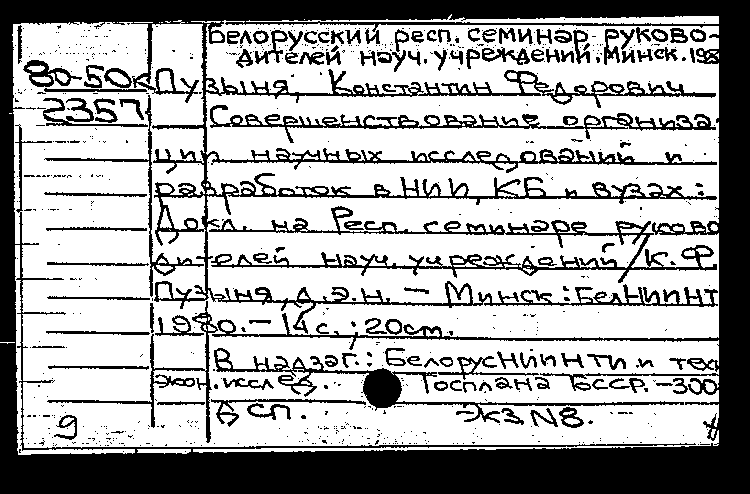 Белорусский респ. семинар руково-
дителей науч. учреждений. Минск. 198
80-50к Пузыня, Константин Федорович
2357 Совершенствование организа-
ции научных исследований и
разработок в НИИ, КБ и вузах:
Докл. на Респ. семинаре руково
дителей науч. учреждений / К. Ф.
Пузыня, д.э.н. — Минск: БелНИИНТ
1980. - 14 с.; 20 см.
В надзаг.: БелорусНИИНТИ и тех
экон. исслед. Госплана БССР. - 300
ДСП. Экз. N8.
9